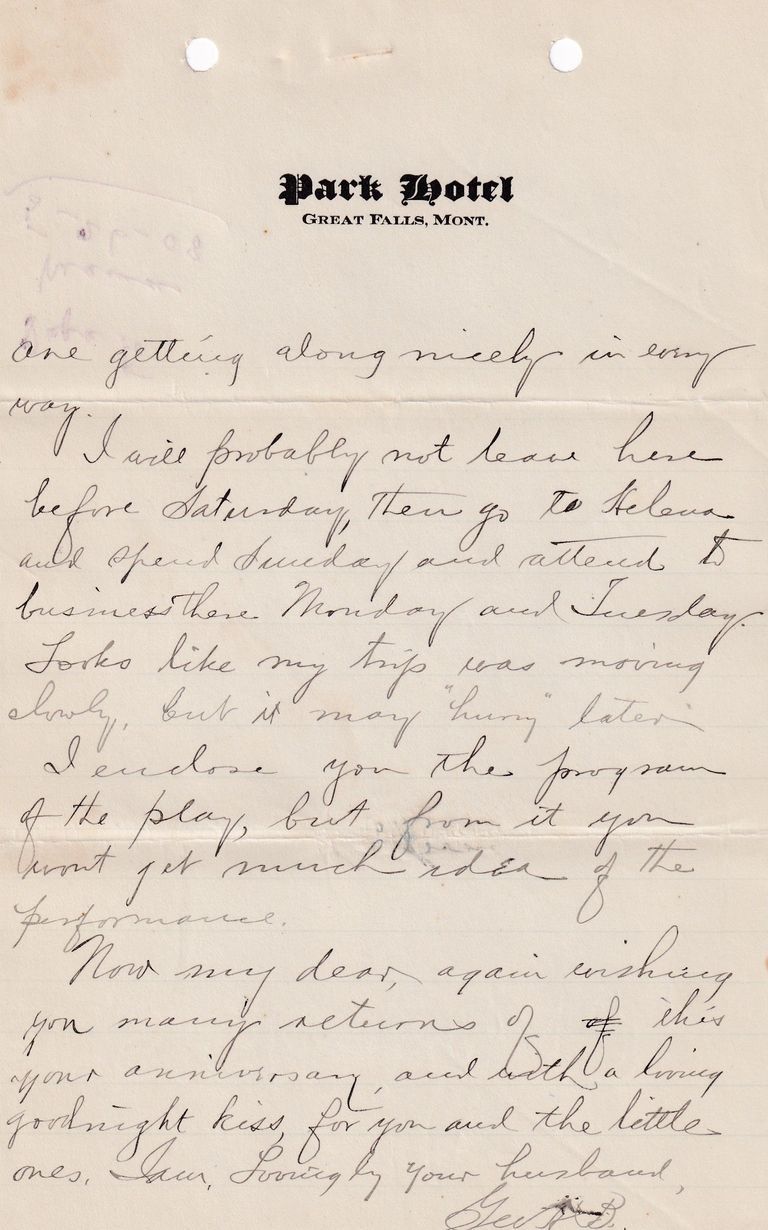 Park Hotel
GREAT FALLS, MONT.
are getting along nicely in every
way.
I will probably not leave here
before Saturday, then go to Helena
and spend Sunday and attend to
business there Monday and Tuesday.
Looks like my trip was moving
slowly, but it may "hurry" later
I enclose you the program
of the play, but from it you
wont get much idea of the
performance.
Now my dear, again wishing
you many returns of of this
your anniversary, and with a loving
goodnight kiss, for you and the little
ones. I am, Lovingly your husband,
Geo B.